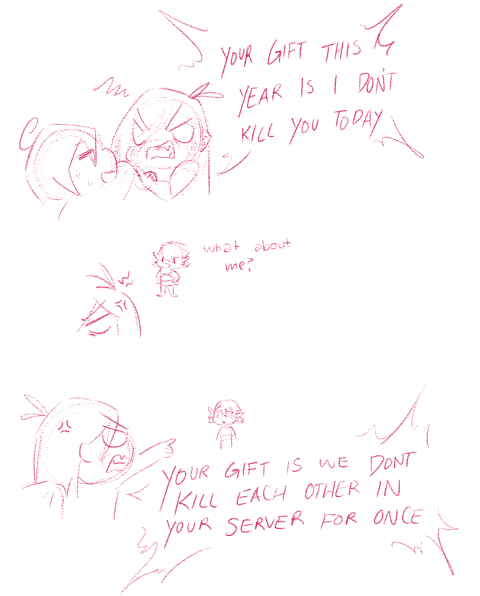 YOUR GIFT THIS
YEAR IS I DON'T
KILL YOU TODAY
what about
me?
YOUR GIFT IS WE DONT
KILL EACH OTHER IN
YOUR SERVER FOR ONCE